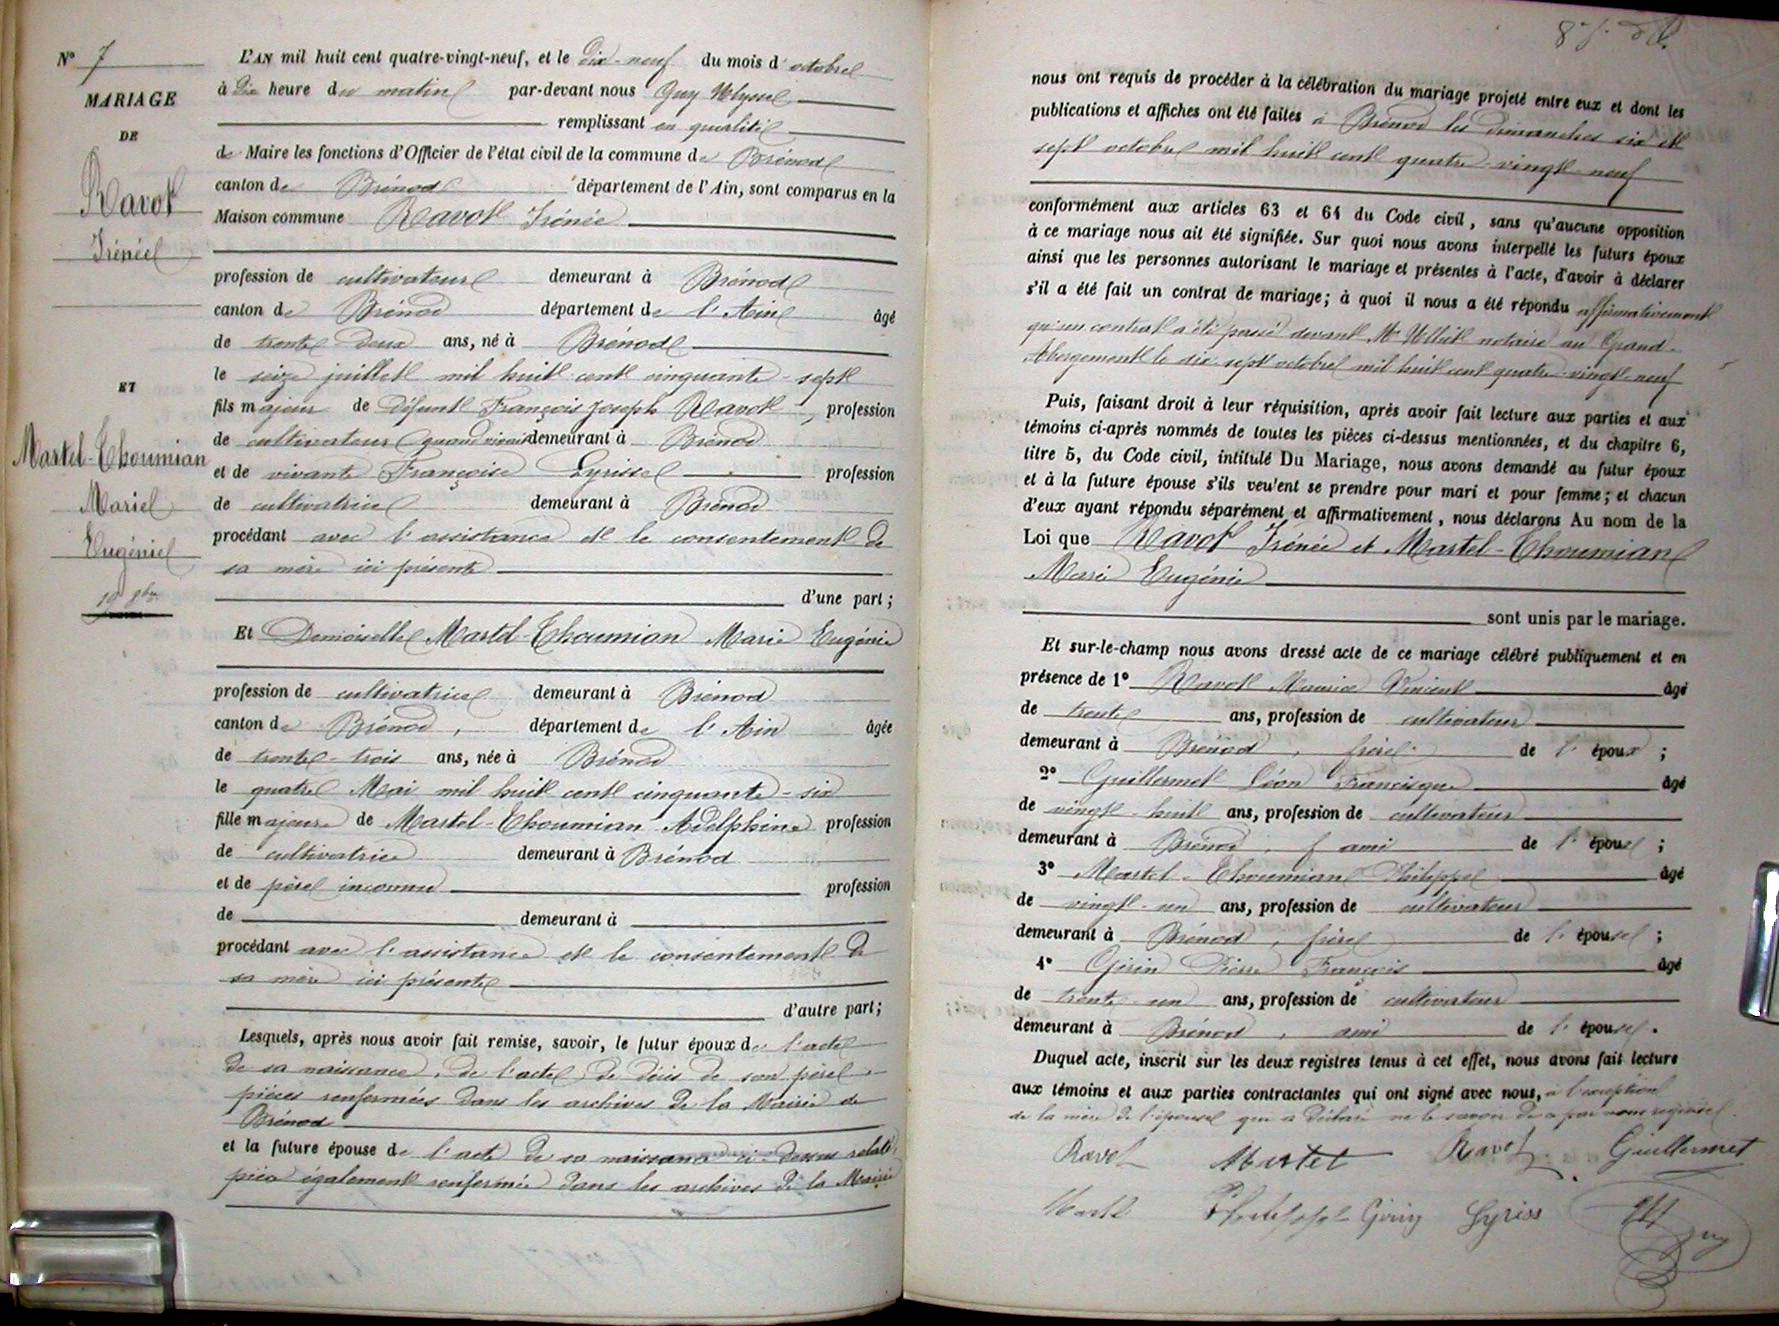 N° 7
MARIAGE
DE
Ravot
Irénée
ET
Martel-Thoumian
Marie
Eugénie
19 8bre
L'AN mil huit cent quatre-vingt-neuf, et le Dix-neuf du mois d'octobre
à Dix heure du matin par-devant nous Guy Ulysse
remplissant en qualité
de Maire les fonctions d'Officier de l'état civil de la commune de Brénod
canton de Brénod département de l'Ain, sont comparus en la
Maison commune Ravot Irénée
profession de cultivateur demeurant à Brénod
canton de Brénod département de l'Ain âgé
de trente deux ans, né à Brénod
le seize juillet mil huit cent cinquante-sept
fils majeur de défunt François Joseph Ravot, profession
de cultivateur quand vivait demeurant à Brénod
et de vivante Françoise Lyrisse profession
de cultivatrice demeurant à Brénod
procédant avec l'assistance et le consentement de
sa mère ici présente
d'une part;
Et Demoiselle Martel-Thoumian Marie Eugénie
profession de cultivatrice demeurant à Brénod
canton de Brénod, département de l'Ain âgée
de trente-trois ans, née à Brénod
le quatre Mai mil huit cent cinquante-six
fille majeure de Martel-Thoumian Adelphine profession
de cultivatrice demeurant à Brénod
et de père inconnu profession
de demeurant à
procédant avec l'assistance et le consentement de
sa mère ici présente
d'autre part;
Lesquels, après nous avoir fait remise, savoir, le futur époux de l'acte
de sa naissance, de l'acte de décès de son père,
pièces renfermées dans les archives de la Mairie de
Brénod
et la future épouse de l'acte de sa naissance ci-dessus relaté,
pièce également renfermée dans les archives de la Mairie
nous ont requis de procéder à la célébration du mariage projeté entre eux et dont les
publications et affiches ont été faites à Brénod les dimanches six et
sept octobre mil huit cent quatre-vingt-neuf
conformément aux articles 63 et 64 du Code civil, sans qu'aucune opposition
à ce mariage nous ait été signifiée. Sur quoi nous avons interpellé les futurs époux
ainsi que les personnes autorisant le mariage et présentes à l'acte, d'avoir à déclarer
s'il a été fait un contrat de mariage; à quoi il nous a été répondu affirmativement
qu'un contrat a été passé devant Me notaire au Grand-
Abergement le dix-sept octobre mil huit cent quatre-vingt-neuf
Puis, faisant droit à leur réquisition, après avoir fait lecture aux parties et aux
témoins ci-après nommés de toutes les pièces ci-dessus mentionnées, et du chapitre 6,
titre 5, du Code civil, intitulé Du Mariage, nous avons demandé au futur époux
et à la future épouse s'ils veu'ent se prendre pour mari et pour femme; et chacun
d'eux ayant répondu séparément et affirmativement, nous déclarons Au nom de la
Loi que Ravot Irénée et Martel-Thoumian
Marie Eugénie
sont unis par le mariage.
Et sur-le-champ nous avons dressé acte de ce mariage célébré publiquement et en
présence de 1° Ravot Maurice Vincent âgé
de trente ans, profession de cultivateur
demeurant à Brénod, frère de l'époux;
2° Guillermet Léon Francisque âgé
de vingt-huit ans, profession de cultivateur
demeurant à Brénod, ami de l'épouse;
3° Martel-Thoumian Philippe âgé
de vingt-un ans, profession de cultivateur
demeurant à Brénod, frère de l'épouse;
4° Girin Pierre François âgé
de trente-un ans, profession de cultivateur
demeurant à Brénod, ami de l'épouse.
Duquel acte, inscrit sur les deux registres tenus à cet effet, nous avons fait lecture
aux témoins et aux parties contractantes qui ont signé avec nous, à l'exception
de la mère de l'épouse qui a déclaré ne le savoir de ce par nous requise.
Ravot Martel Ravot Guillermet
Martel Philippe Girin Lyriss Guy